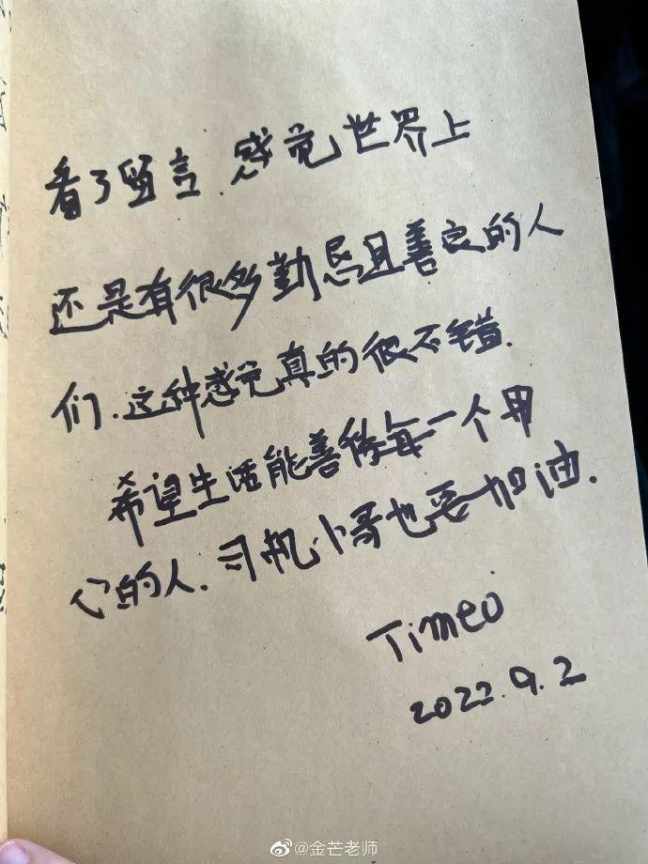 看了留言.感觉世界上
还是有很多勤恳且善良的人
们.这种感觉真的很不错.
希望生活能善待每一个用
心的人.司机小哥也要加油.
Timeo
2022.9.2
@金芒老师